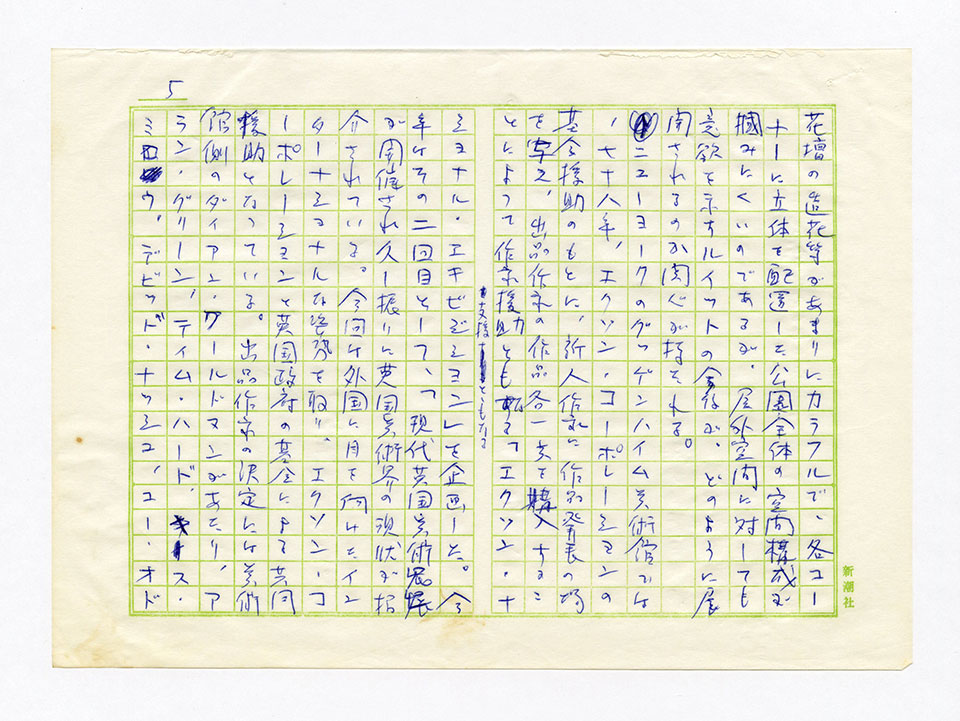 5
花壇の造花等があまりにカラフルで、各コー
ナーに立体を配置した公園全体の空間構成が
掴みにくいのであるが、屋外空間に対しても
意欲を示すルイットの今後が、どのように展
開されるのか関心が持たれる。
ニューヨークのグッゲンハイム美術館では
、七十八年、エクソン・コーポレーションの
基金援助のもとに、新人作家に作品発表の場
を与え、出品作家の作品各一点を購入するこ
とによって作家援助ともなる「エクソン・ナ
支援 ともなる
ショナル・エキビジション」を企画した。今
年はその二回目として、「現代英国美術展」
が開催され久し振りに英国美術界の現状が招
介されている。今回は外国に目を向けたイン
ターナショナルな姿勢を取り、エクソン・コ
ーポレーションと英国政府の基金による共同
援助となっている。出品作家の決定には美術
館側のダイアン・ワールドマンがあたり、ア
ラン・グリーン、ティム・ハード、ス・
ミロウ、デビッド・ナッシュ、ユー・オド
新潮社